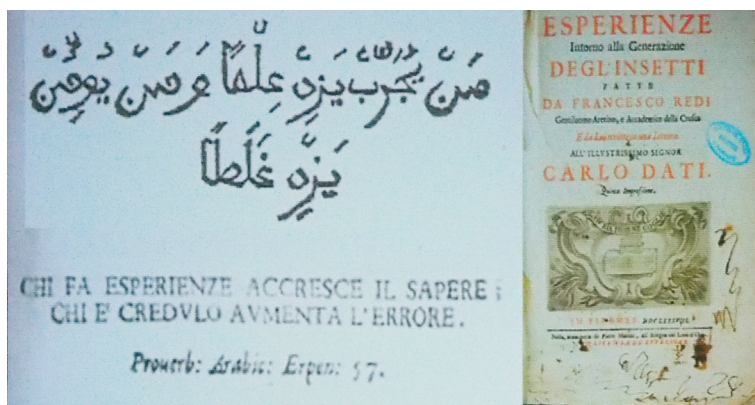 مَنْ يُجَرِّبْ يَزِدْ عِلْمًا وَمَنْ يُومِنْ
يَزِدْ غَلَطًا
CHI FA ESPERIENZE ACCRESCE IL SAPERE;
CHI E' CREDVLO AVMENTA L'ERRORE.
Prouerb: Arabic: Erpen: 57.
ESPERIENZE
Intorno alla Generazione
DEGL'INSETTI
FATTE
DA FRANCESCO REDI
Gentiluomo Aretino, e Accademico della Crusca
E da Lui scritte in una Lettera
ALL'ILLVSTRISSIMO SIGNOR
CARLO DATI.
Quinta Impressione.
IN FIRENZE